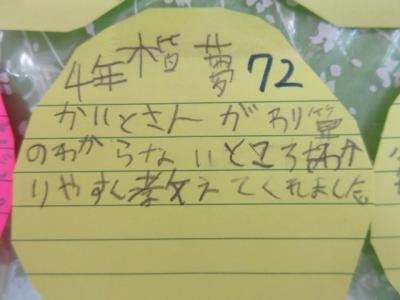 4年 楷夢 72
かいとさんがわり算
のわからないところをわか
りやすく教えてくれました。